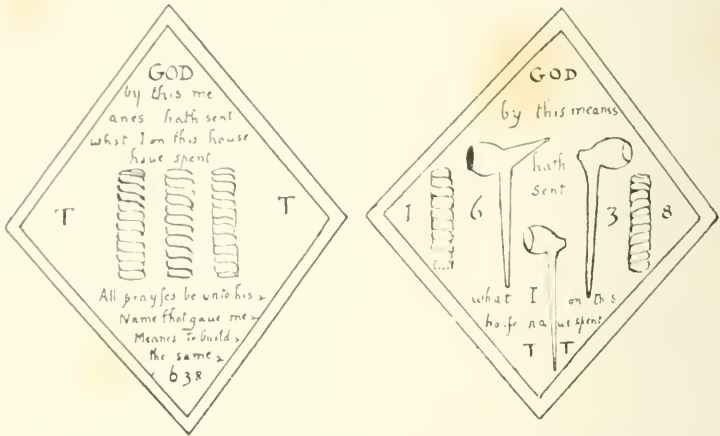 GOD
by this me
anes hath sent
what I on this house
haue spent
T T
All prayses be unto his
Name that gaue me
Meanes to build
the same
1638
GOD
by this means
hath
sent
1 6 3 8
what I on this
house haue spent
T T